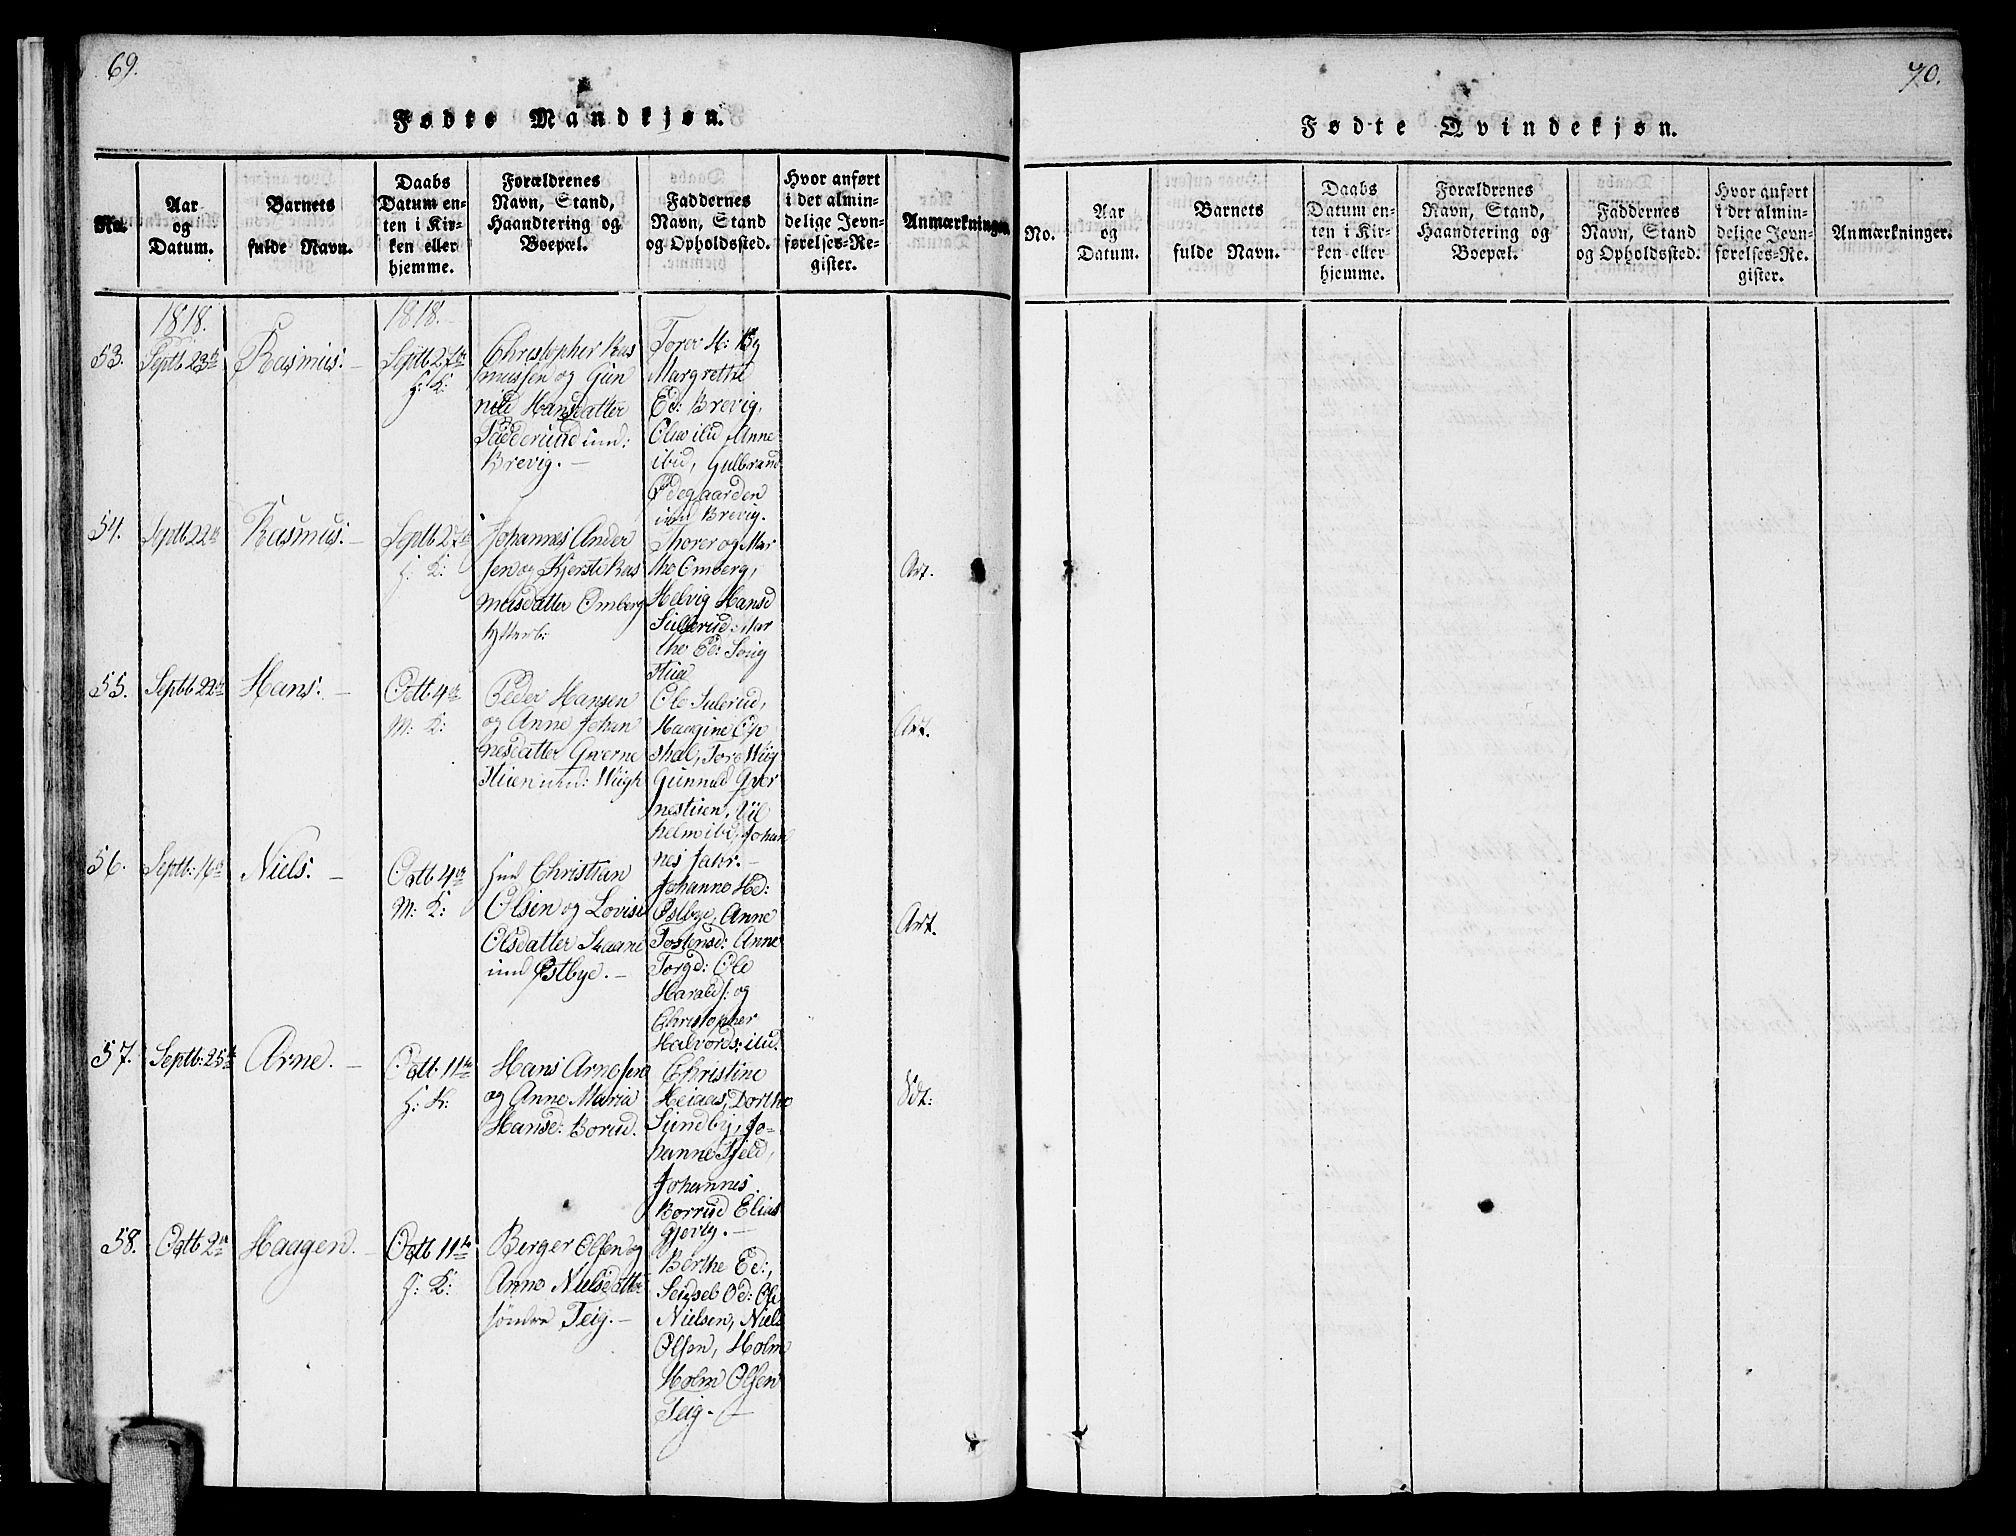 69.
Fødte Mandkjøn.
No.
Aar
og
Datum.
Barnets
fulde Navn.
Daabs
Datum en-
ten i Kir-
ken eller
hjemme.
Forældrenes
Navn, Stand,
Haandtering og
Boepæl.
Faddernes
Navn, Stand
og Opholdssted.
Hvor anført
i det almin-
delige Jevn-
førelses-Re-
gister.
Anmærkninger.
1818.
1818.
53.
Septb 23de
Rasmus:
Septb 27de
H: K:
Christopher Ras
mussen og Gun
nild Hansdatter
und:
Brevig.
Torer H: By
Margrethe
Ed: Brevig,
Anne
ibid, Gulbrand
Ødegaarden
und Brevig.
54.
Septb 22de
Rasmus:
Septb 27de
H: K:
Johannes Ander
sen og Kjersti Ras
musdatter Omberg
Thorer og Mar
the Omberg,
Helvig Hansd
Sullerud: Mar
the Ed:
Art.
55.
Septbb 22de
Hans:
Octb 4de
M: K:
Peder Hansen
og Anne Johan
nesdatter Qverne
stuen und: Wiigh
Ole Sulerud,
Haagine Op
shal, Tore Wiig
Gunnild Qver
nestuen, Vil
helm ibid, Johan
nes
Art.
56.
Septb: 16de
Niels:
Octb 4de
M: K:
Christian
Olsen og Lovise
Olsdatter
und Østbye.
Johanne Hd:
Østbye, Anne
Tostensd: Anne
Torgd: Ole
Harald: og
Christopher
Halvords: ibid.
Art.
57.
Septb: 25de
Arne.
Octb 11te
H: K:
Hans Arnesen
og Anne Maria
Hansd: Borud.
Christine
Heiaas, Dorthe
Sundby, Jo-
hanne Fjeld,
Johannes
Borrud Elias
Gjerby.
Sdt:
58.
Octb 2de
Haagen.
Octb 11te
H: K:
Berger Olsen og
Anne Nielsdatter
søndre Teig.
Berthe Ed:,
Od: Ole
Nielsen, Niels
Olsen, Holm
Holm Olsen
Teig.
70.
Fødte Qvindekjøn.
No.
Aar
og
Datum.
Barnets
fulde Navn.
Daabs
Datum en-
ten i Kir-
ken eller
hjemme.
Forældrenes
Navn, Stand,
Haandtering og
Boepæl.
Faddernes
Navn, Stand
og Opholdssted.
Hvor anført
i det almin-
delige Jevn-
førelses-Re-
gister.
Anmærkninger.